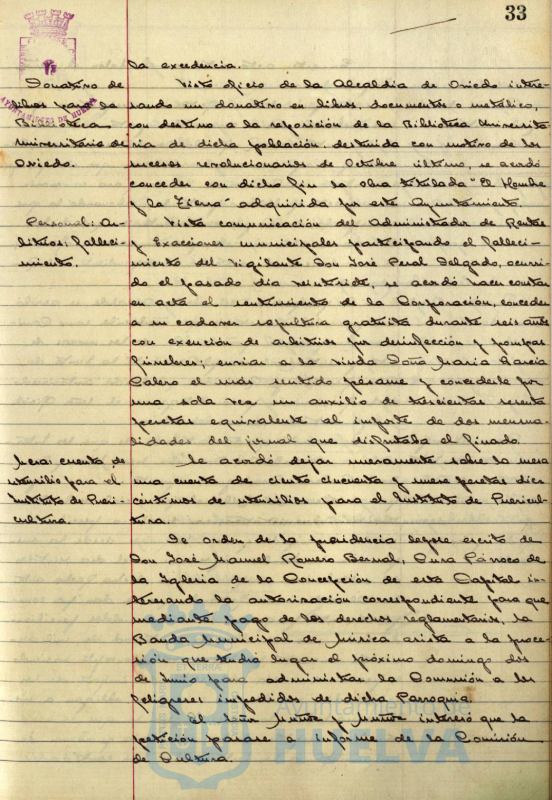 33
la excedencia.
Donativo de
libros para la
Biblioteca
universitaria de
Oviedo.
Visto oficio de la Alcaldía de Oviedo intere-
sando un donativo en libros, documentos o metálico,
con destino a la reposición de la Biblioteca Universita
ria de dicha población, destruida con motivo de los
sucesos revolucionarios de Octubre último, se acordó
conceder con dicho fin la obra titulada "El Hombre
y la Tierra" adquirida por este Ayuntamiento.
Personal: Ar-
bitrios: falleci-
miento.
Vista comunicación del Administrador de Rentas
y Exacciones municipales participando el falleci-
miento del Vigilante Don José Peral Delgado, ocurri-
do el pasado día veintisiete, se acordó hacer constar
en acta el sentimiento de la Corporación, conceder
a su cadaver sepultura gratuita durante seis años
con exención de arbitrios por desinfección y pompas
fúnebres; enviar a la viuda Doña María García
Calero el más sentido pésame y concederle por
una sola vez un auxilio de trescientas sesenta
pesetas equivalente al importe de dos mensua-
lidades del jornal que disfrutaba el finado.
Mesa: cuenta de
utensilio para el
Instituto de Pueri-
cultura.
Se acordó dejar nuevamente sobre la mesa
una cuenta de ciento cincuenta y nueve pesetas diez
céntimos de utensilios para el Instituto de Puericul-
tura.
De orden de la presidencia leyose escrito de
Don José Manuel Romero Bernal, Cura Párroco de
la Iglesia de la Concepción de esta Capital in-
teresando la autorización correspondiente para que
mediante pago de los derechos reglamentarios, la
Banda Municipal de Música asista a la proce-
sión que tendrá lugar el próximo domingo dos
de Junio para administrar la Comunión a los
feligreses impedidos de dicha Parroquia.
El Señor Muñoz y Muñoz interesó que la
petición pasase a informe de la Comisión
de Cultura.
Ayuntamiento de
HUELVA